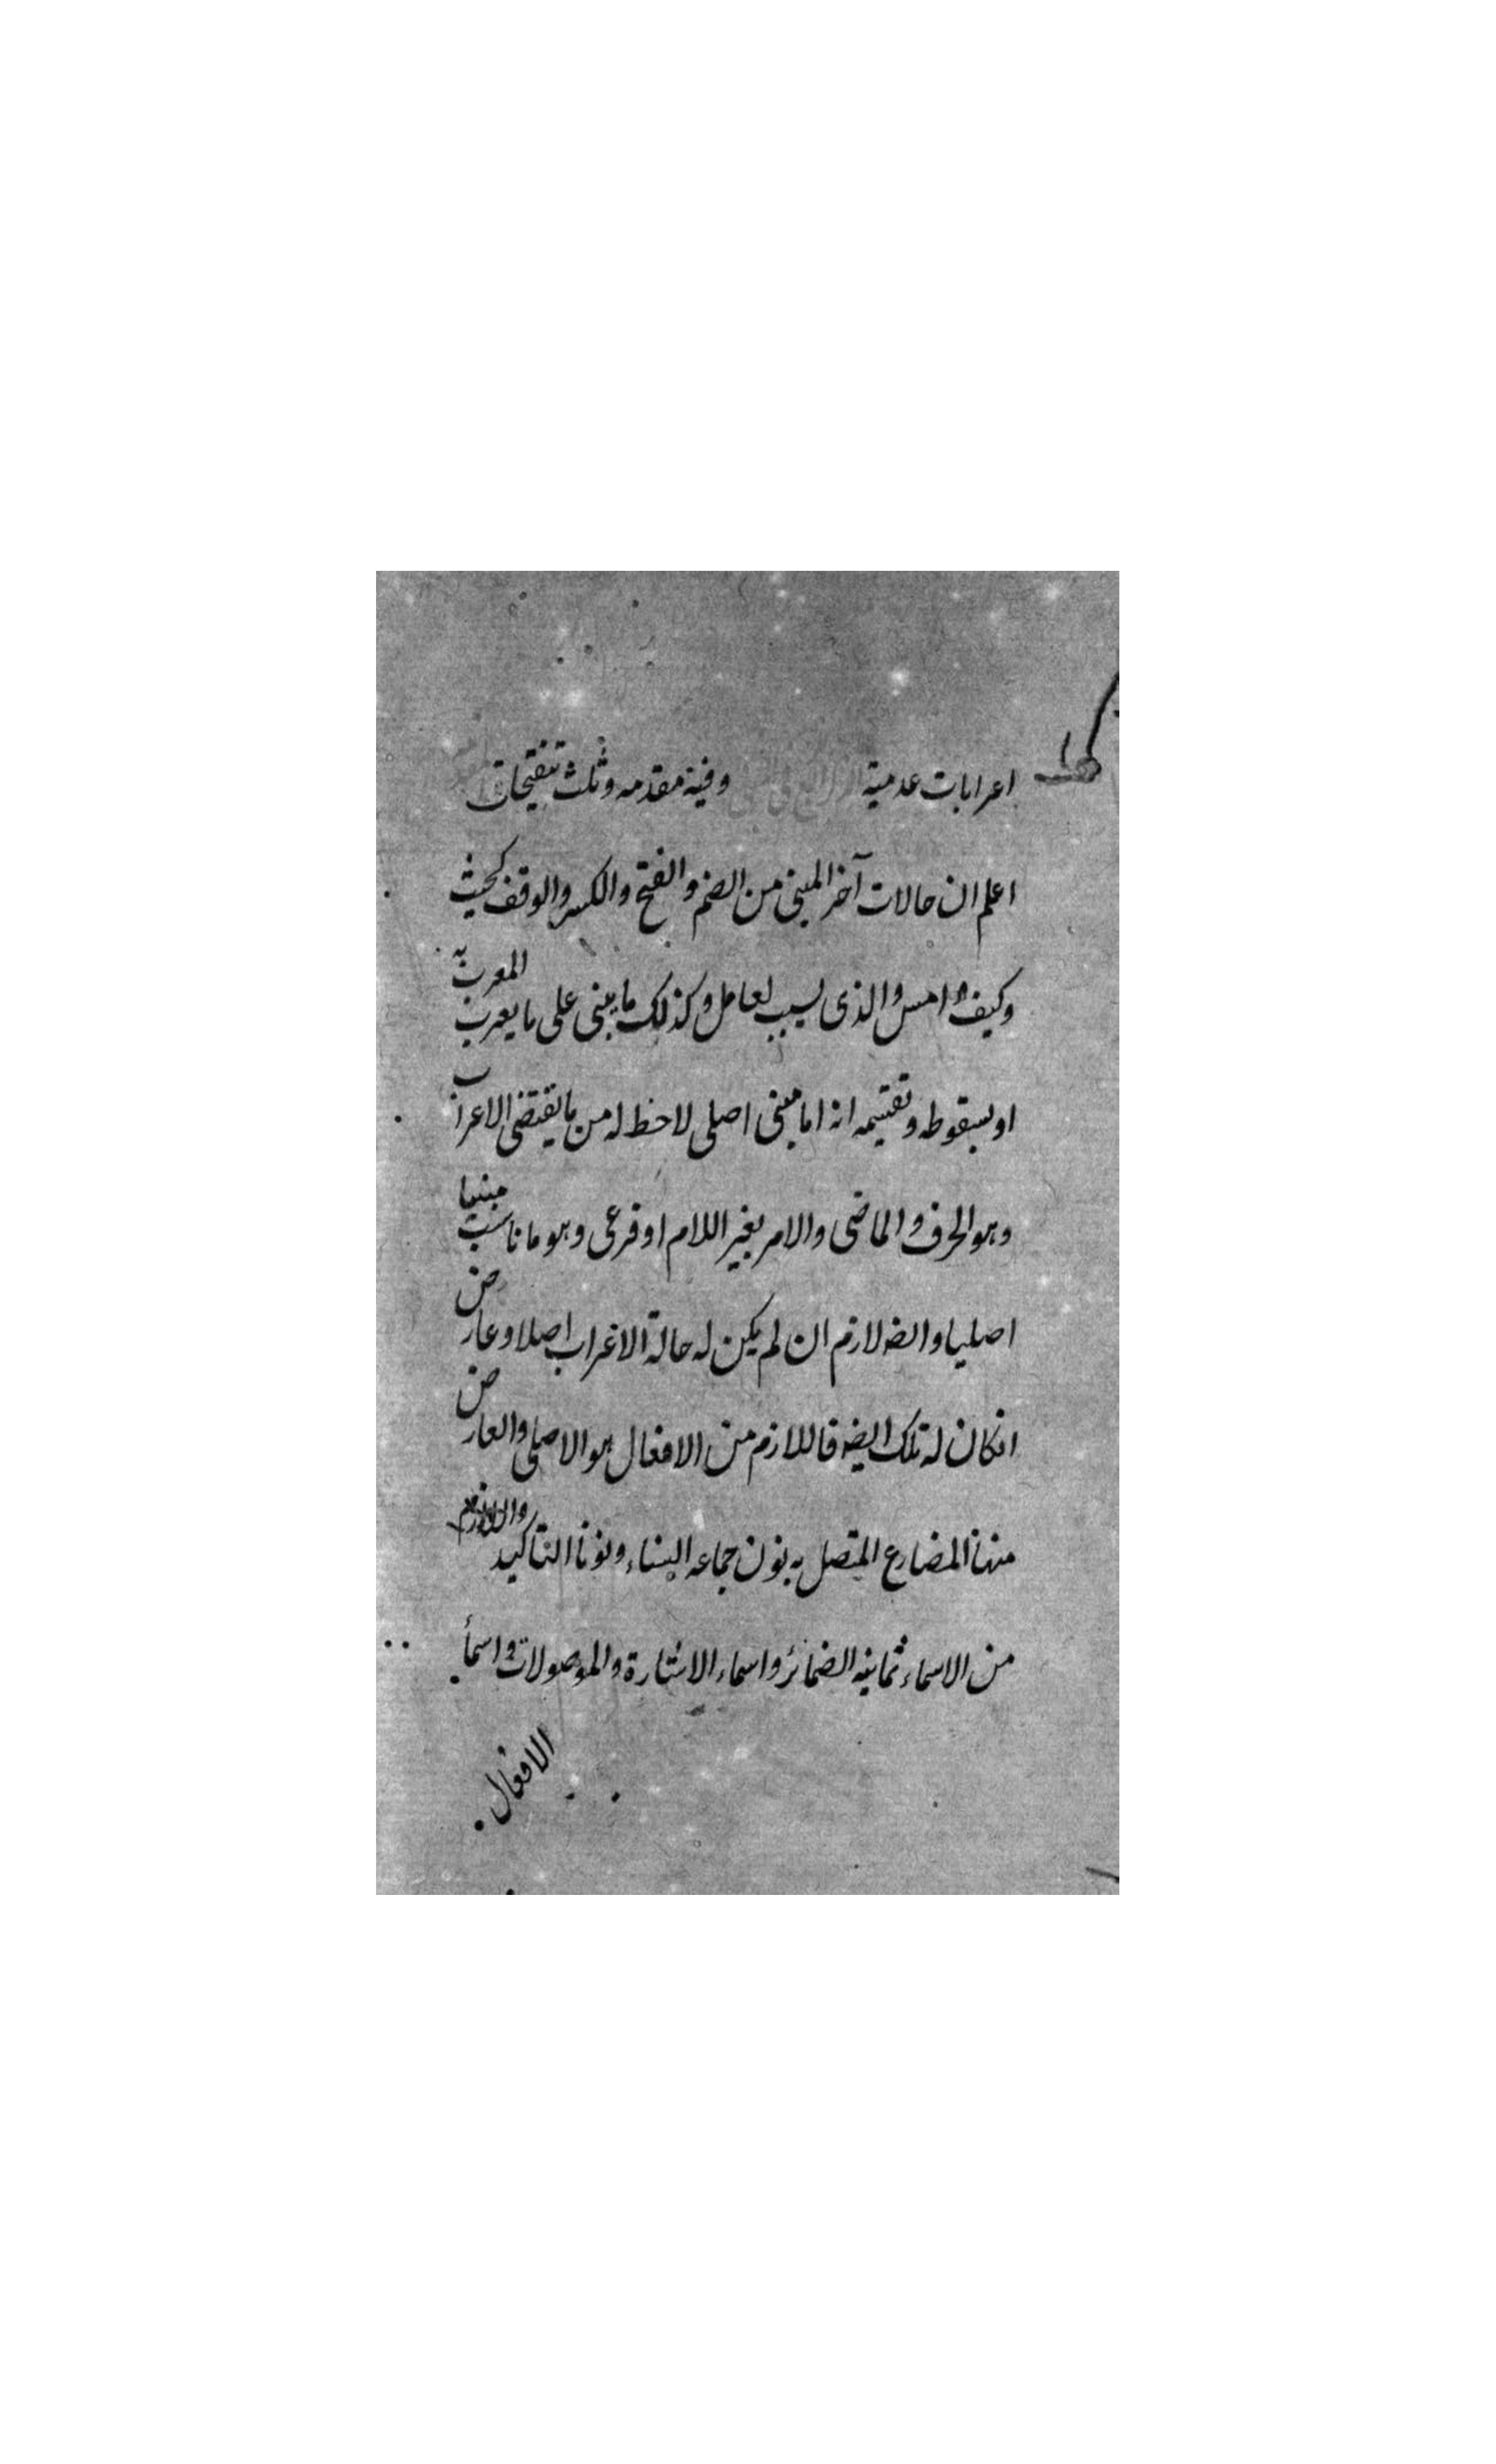 اعرابات عدمية وفيه مقدمه وثلث تنقيحات
اعلم ان حالات آخر المبنى من الضم والفتح والكسر والوقف كحيث
وكيف وامس والذى لسبب لعامل وكذلك ما يبنى على ما يعرب المعرب به
او بسقوطه وتقسيمه انه اما مبنى اصلى لا حظ له من ما يقتضى الاعراب
وهو الحرف والماضى والامر بغير اللام او فرعى وهو ما ناسب مبنيا
اصليا وايضا لازم ان لم يكن له حالة الاعراب اصلا وعارض
انكان له تلك ايضا فاللازم من الافعال هو الاصلى والعارض
منها المضارع المتصل به نون جماعه النساء ونونا التاكيد واللازم
من الاسماء ثمانيه الضمائر واسماء الاشارة والموصولات واسماء
الافعال